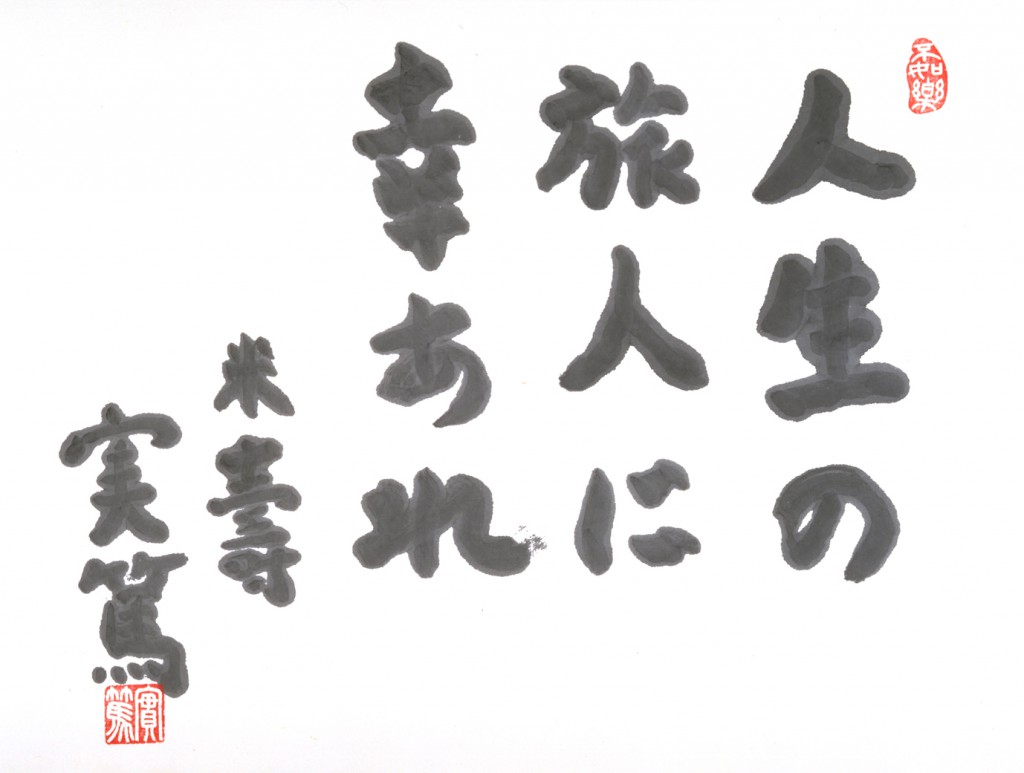 不如樂
人生の
旅人に
幸あれ
米壽
実篤
實篤